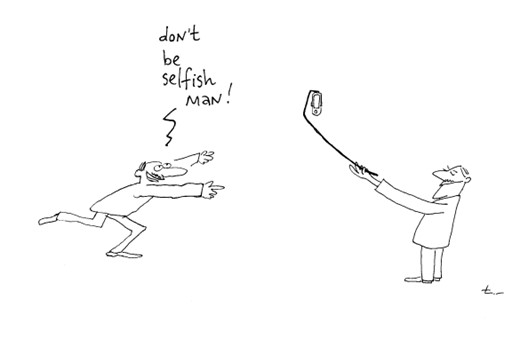 don't
be
selfish
MAN!
t.-